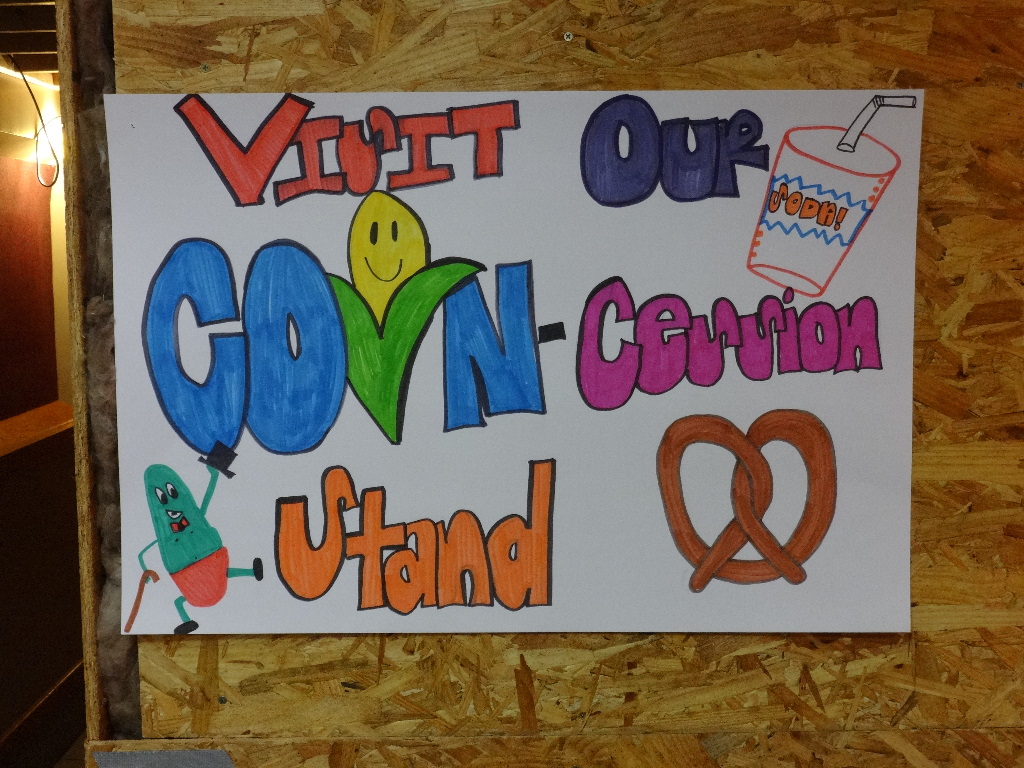 VISIT OUR
SODA!
CORN-Cession
Stand